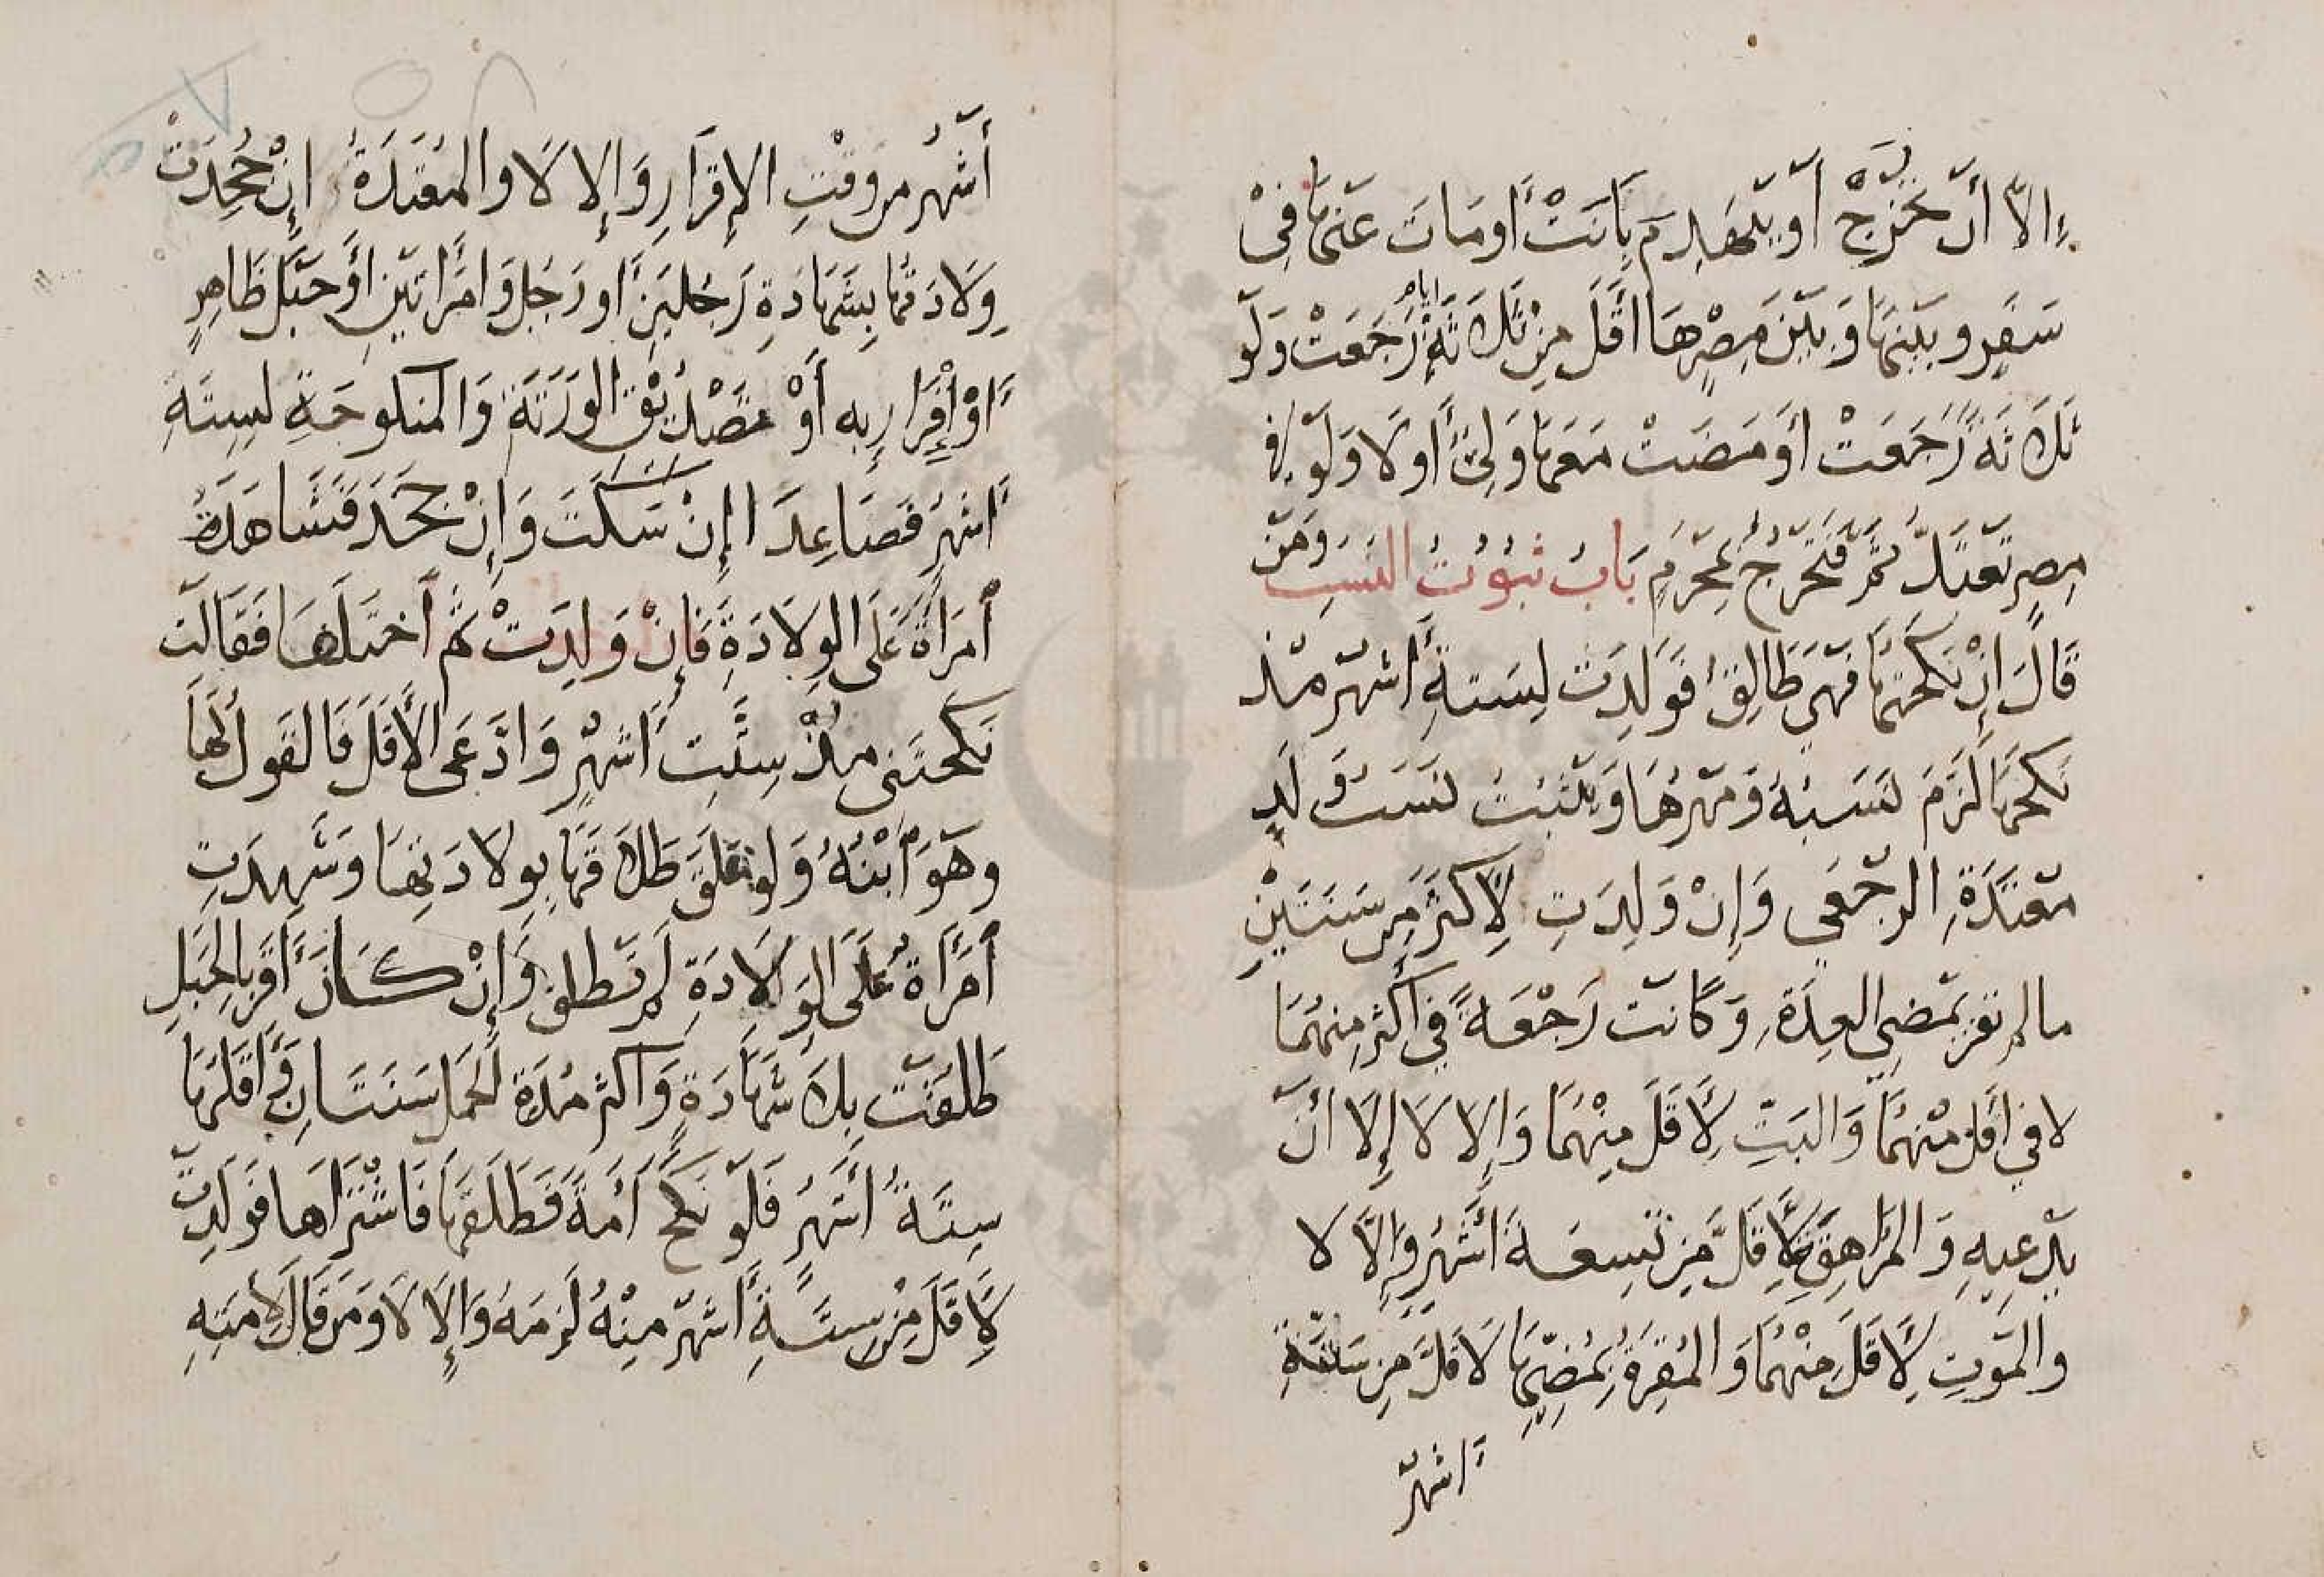 إلا أن تخرج أو ينهدم بانت أو مات عنها في
سفر وبينها وبين مصرها أقل من ثلاثة أيام رجعت ولو
ثلاثة رجعت أو مضت معها ولي أو لا ولو في
مصر تعتد ثم فتخرج بمحرم باب ثبوت النسب ومن
قال إن نكحتها فهي طالق فولدت لستة أشهر مذ
نكحها لزم نسبه ومهرها ويثبت نسب ولد
معتدة الرجعي وإن ولدت لأكثر من سنتين
مالم تقر بمضي العدة وكانت رجعة في أكثر منهما
لا في أقل منهما والبت لأقل منهما وإلا لا إلا أن
يدعيه والمراهقة لأقل من تسعة أشهر وإلا لا
والموت لأقل منهما والمقرة بمضيها لأقل من ستة
أشهر
أشهر من وقت الإقرار وإلا لا والمعتدة إن جحدت
ولادتها بشهادة رجلين أو رجل وامراتين أو حبل ظاهر
أو إقرار به أو تصديق الورثة والمنكوحة لستة
أشهر فصاعدا إن سكت وإن جحد فشاهدة
امرأة على الولادة فإن ولدت ثم اختلفا فقالت
نكحتني مذ ستت أشهر وادعى الأقل فالقول لها
وهو ابنه ولو علق طلاقها بولادتها وشهدت
امرأة على الولادة لم تطلق وإن كان أقر بالحبل
طلقت بلا شهادة وأكثر مدة الحمل سنتان وأقلها
ستة أشهر فلو نكح أمة فطلقها فاشتراها فولدت
لأقل من ستة أشهر منه لزمه وإلا لا ومن قال لأمته